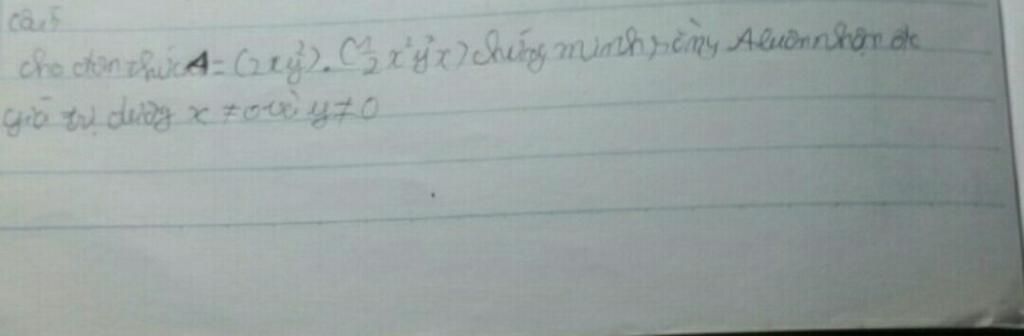 câu 5
cho đơn thức A = (2xy²). (1/2 x²y²x) chứng minh rằng A luôn nhận đc
giá trị dương x ≠ 0 và y ≠ 0